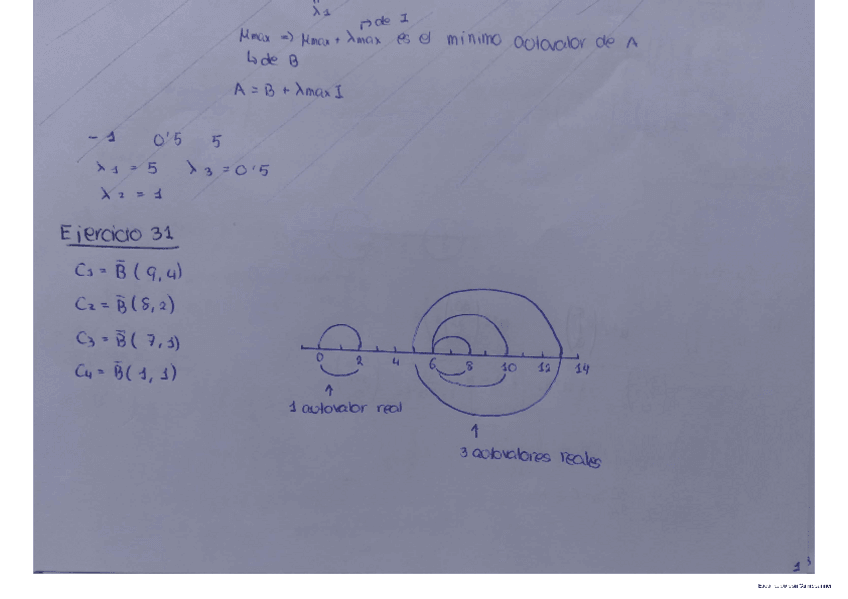 λ1
μmax => μmax + λmax es el mínimo autovalor de A
↳ de B
↱ de I
A = B + λmax I
- 1 0'5 5
λ1 = 5 λ3 = 0'5
λ2 = 1
Ejercicio 31
C1 = B̄ ( 9, 4)
C2 = B̄ (8, 2)
C3 = B̄ ( 7, 1)
C4 = B̄ ( 1, 1)
0 2 4 6 8 10 12 14
1 autovalor real
3 autovalores reales